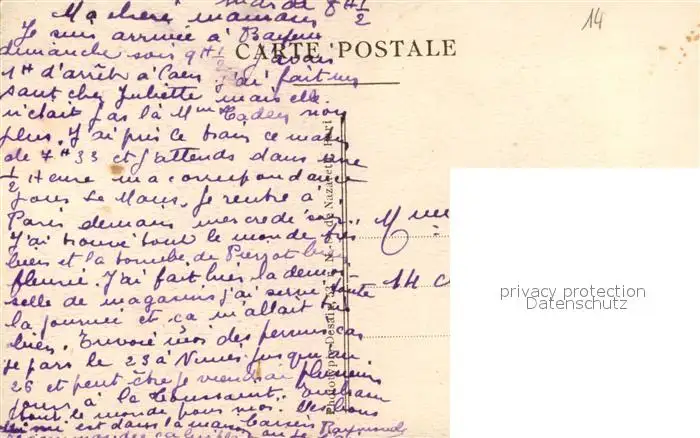 mardi 8H 1/2
14
Ma chère maman
Je suis arrivée à Bayeux
dimanche soir 9H
CARTE POSTALE
1H d'arrêt à Caen j'ai fait un
saut chez Juliette mais elle
n'était pas là Mme non
plus. J'ai pris ce train ce matin
de 7H33 et j'attends dans une
1/2 Heure ma correspondance
pour Le Mans. Je rentre à
Paris demain mercredi soir.
J'ai trouvé tout le monde très
bien et la tombe de bien
fleurie. J'ai fait hier la demoi
selle de magasins j'ai servi toute
la journée et ça m'allait très
bien. Envoie moi des
je pars le 23 à Nîmes jusqu'au
26 et peut-être je viendrai plusieurs
jours à la Toussaint.
tout le monde pour moi.
est dans la
Raymonde
Mme
14
N.-D. de Nazareth
privacy protection
Datenschutz